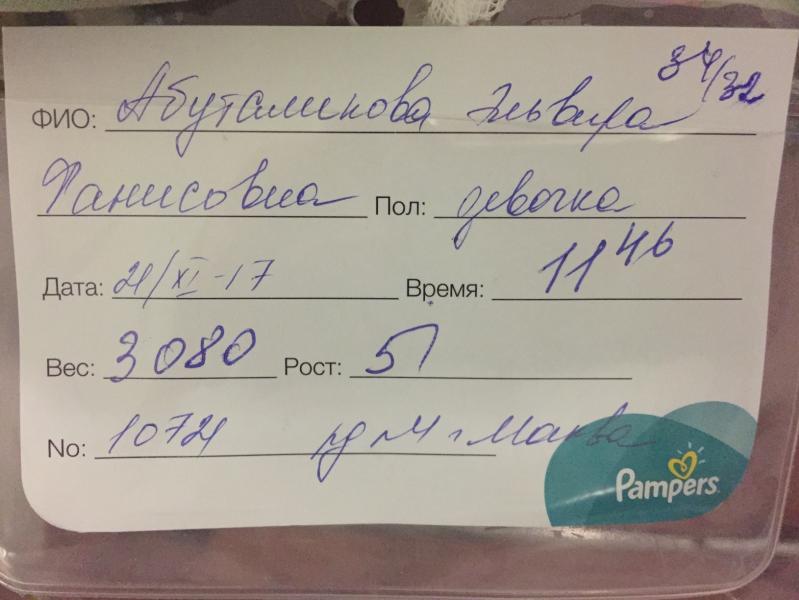 34/32
ФИО: Абуталипова Эльвира
Фанисовна Пол: девочка
Дата: 21/XI-17 Время: 11 46
Вес: 3080 Рост: 51
No: 1074 рд №4 г Москва
Pampers